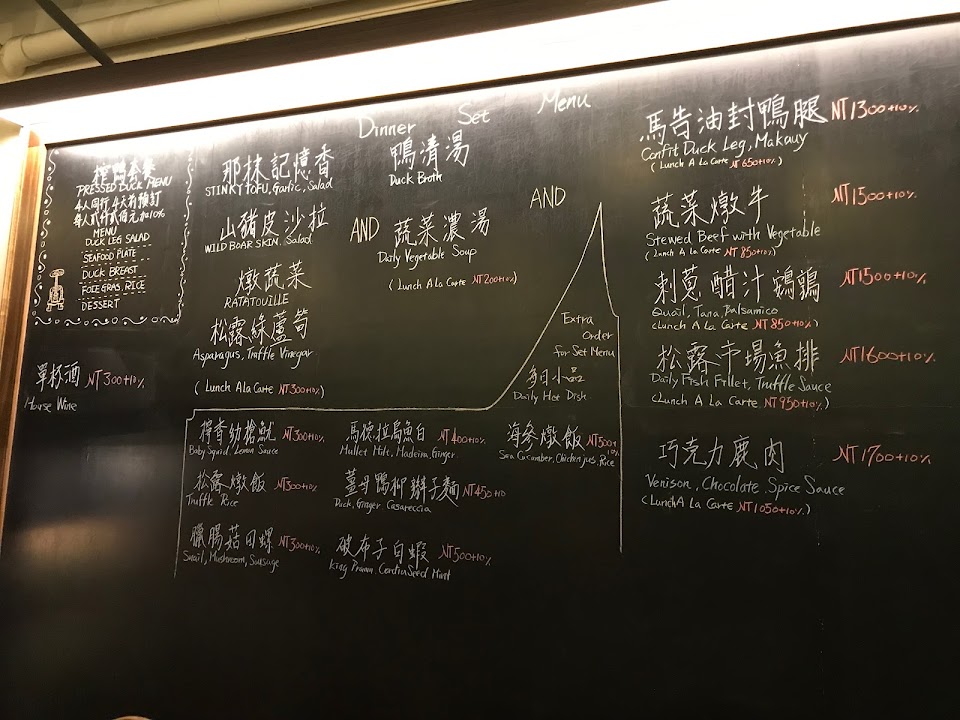 Dinner Set Menu
榨鴨套餐
PRESSED DUCK MENU
4人同行 4天前預訂
每人貳仟貳佰元加10%
MENU
DUCK LEG SALAD
SEAFOOD PLATE
DUCK BREAST
FOIE GRAS, RICE
DESSERT
單杯酒 NT300+10%
House Wine
那抹記憶香
STINKY TOFU, Garlic, Salad
山豬皮沙拉
WILD BOAR SKIN, Salad
燉蔬菜
RATATOUILLE
松露綠蘆筍
Asparagus, Truffle Vinegar
( Lunch A La Carte NT300+10% )
AND
鴨清湯
Duck Broth
蔬菜濃湯
Daily Vegetable Soup
( Lunch A La Carte NT200+10% )
AND
馬告油封鴨腿 NT1300+10%
Confit Duck Leg, Makauy
( Lunch A La Carte NT650+10% )
蔬菜燉牛 NT1500+10%
Stewed Beef with Vegetable
( Lunch A La Carte NT850+10% )
刺蔥醋汁鵪鶉 NT1500+10%
Quail, Tana, Balsamico
(Lunch A La Carte NT850+10%)
松露市場魚排 NT1600+10%
Daily Fish Fillet, Truffle Sauce
(Lunch A La Carte NT950+10%)
巧克力鹿肉 NT1700+10%
Venison, Chocolate, Spice Sauce
(Lunch A La Carte NT1050+10%)
Extra
Order
for Set Menu
每日小
Daily Hot Dish
檸香幼槍魷 NT300+10%
Baby Squid, Lemon Sauce
松露燉飯 NT300+10%
Truffle Rice
臘腸菇田螺 NT300+10%
Snail, Mushroom, Sausage
馬德拉烏魚白 NT400+10%
Mullet Milt, Madeira, Ginger
薑母鴨柳辮子麵 NT450+10
Duck, Ginger Casareccia
破布子白蝦 NT500+10%
King Prawn, Cordia Seed Mint
海參燉飯 NT500+10%
Sea Cucumber, Chicken jus, Rice